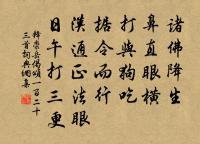 諸佛降生
鼻直眼橫
打與狗吃
据令而行
通正法眼
日午打三更
釋崇岳偈頌一百二十
三首詞典網集